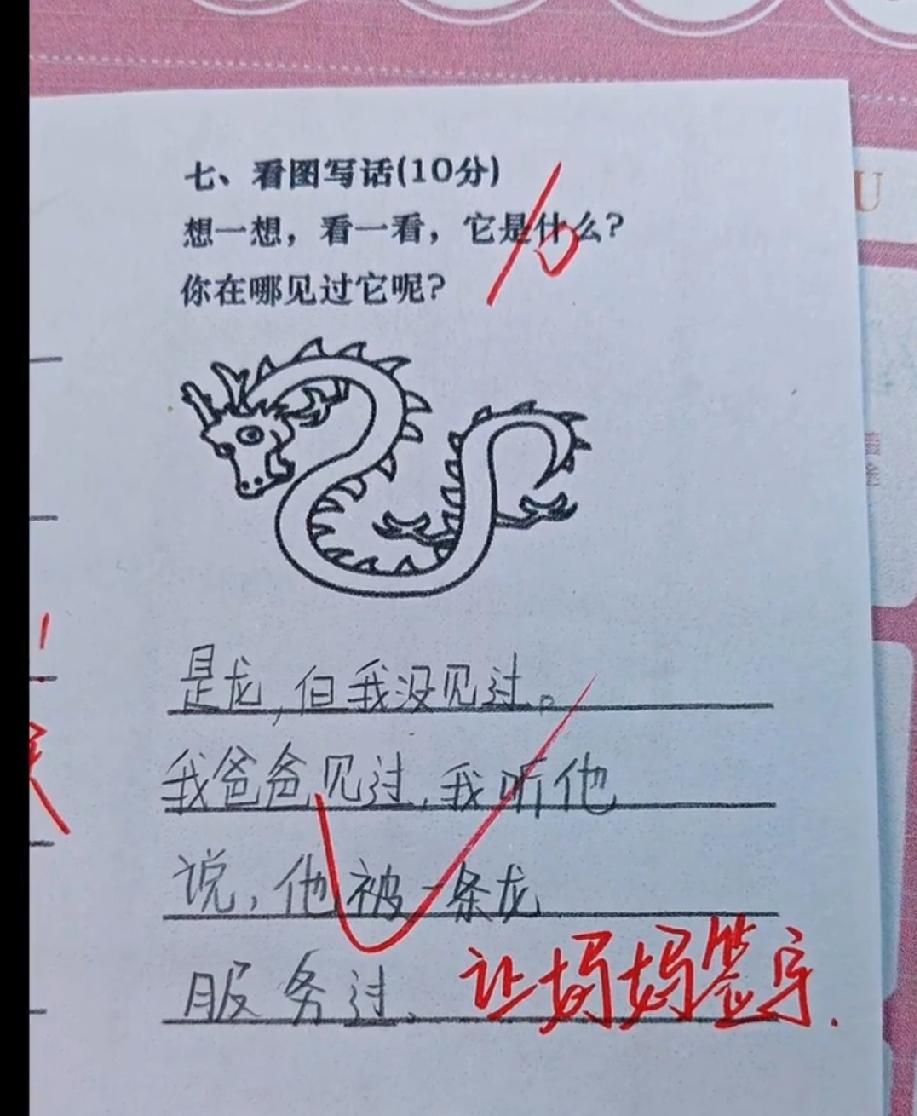 七、看图写话(10分)
想一想，看一看，它是什么？
你在哪见过它呢？
10
是龙,但我没见过。
我爸爸见过,我听他
说,他被一条龙
服务过、
让妈妈签字.
U